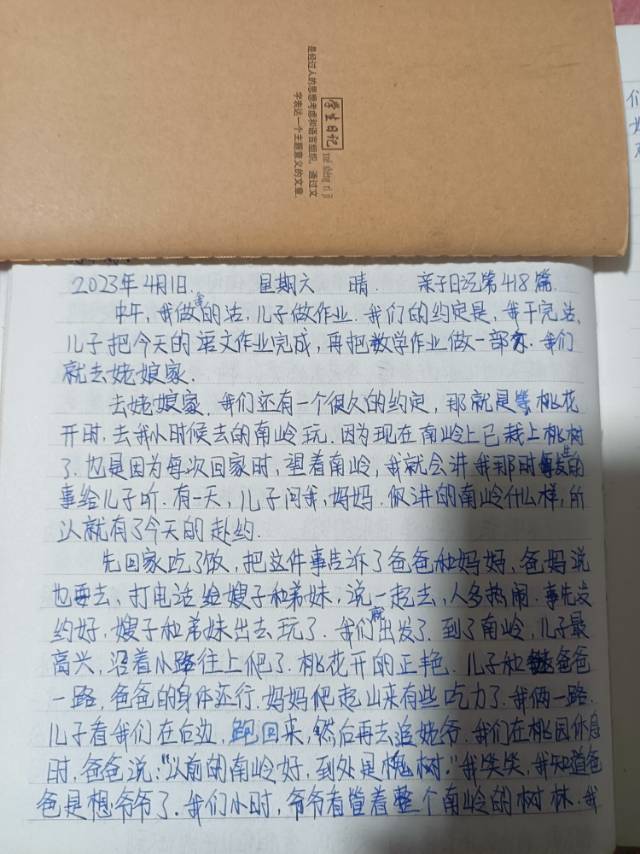 学生日记
xué shēng rì jì
是经过人的思想考虑和语言组织，通过文
字表达一个主题意义的文章.
2023年4月1日. 星期六 晴. 亲子日记第418篇.
中午,我做家的活,儿子做作业.我们的约定是,我干完活,
儿子把今天的语文作业完成,再把数学作业做一部分.我们
就去姥娘家.
去姥娘家,我们还有一个很久的约定,那就是等桃花
开时,去我小时候去的南岭玩.因为现在南岭上已栽上桃树
了.也是因为每次回家时,望着南岭,我就会讲我那时发生的
事给儿子听.有一天,儿子问我,妈妈.你讲的南岭什么样,所
以就有了今天的赴约.
先回家吃了饭,把这件事告诉了爸爸和妈妈,爸妈说
也要去,打电话给嫂子和弟妹,说一起去,人多热闹.事先没
约好,嫂子和弟妹出去玩了.我们就出发了.到了南岭,儿子最
高兴,沿着小路往上爬了.桃花开的正艳.儿子和爸爸
一路,爸爸的身体还行.妈妈爬起山来有些吃力了.我俩一路.
儿子看我们在后边,跑回来,然后再去追姥爷.我们在桃园休息
时,爸爸说:"以前的南岭好,到处是槐树."我笑笑,我知道爸
爸是想爷爷了.我们小时,爷爷看管着整个南岭的树林.我
们